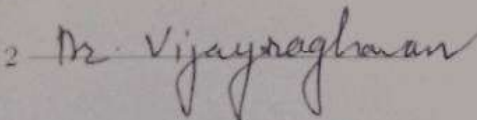 2 Dr. Vijayraghavan